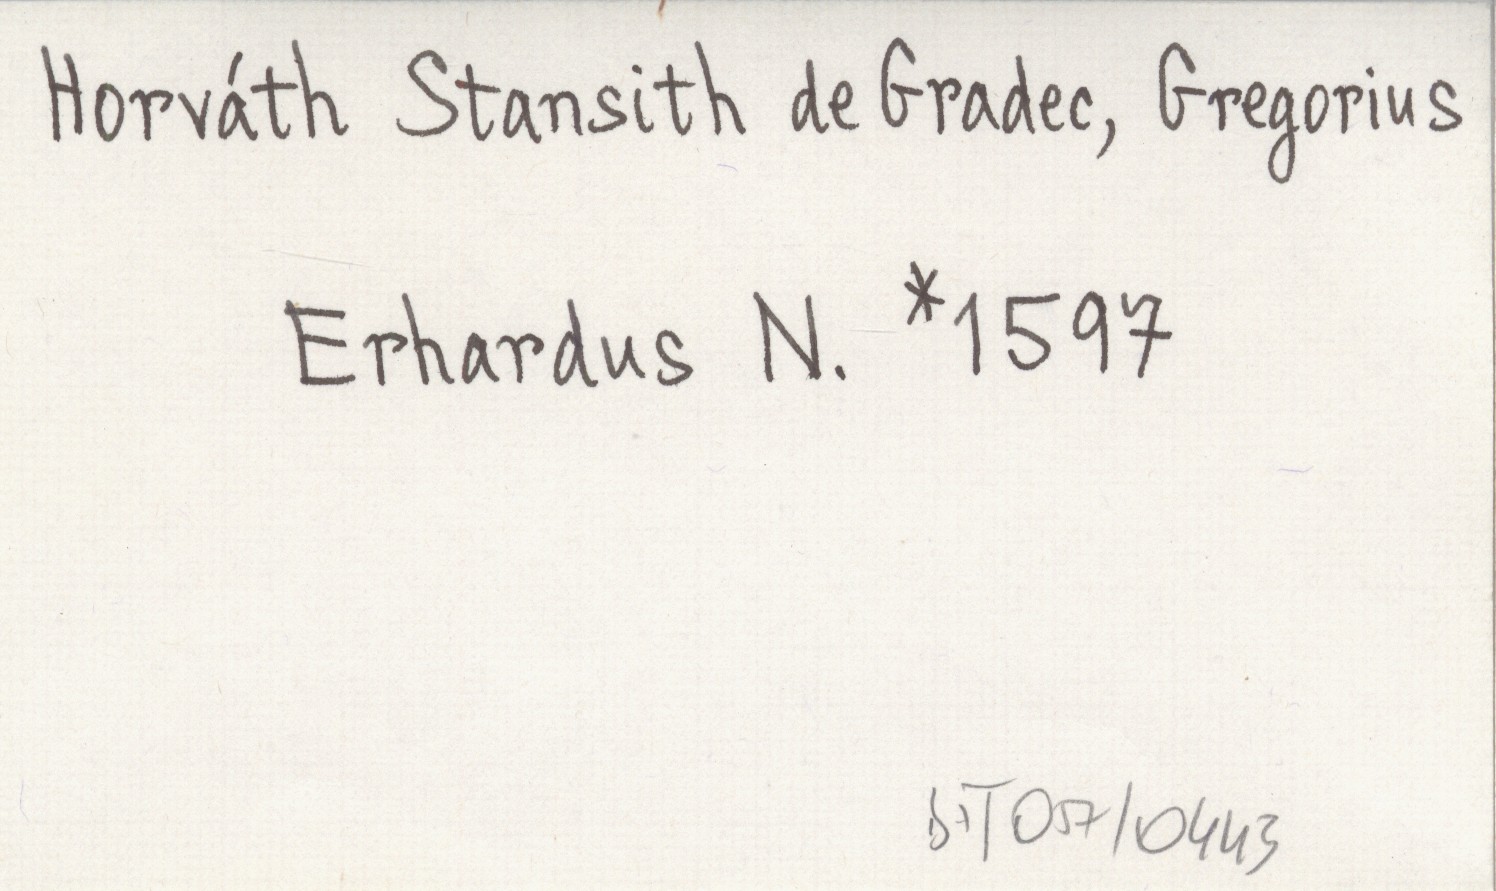 Horváth Stansith de Gradec, Gregorius
Erhardus N. *1597
057/0443